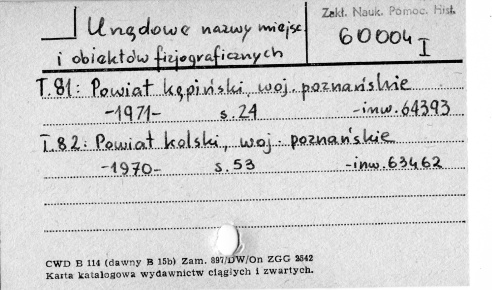 Zakł. Nauk. Pomoc. Hist.
Urzędowe nazwy miejsc.
i obiektów fizjograficznych
60004 I
T.81: Powiat kępiński, woj. poznańskie
-1971- s.24 -inw.64393
T.82: Powiat kolski, woj. poznańskie
-1970- s.53 -inw.63462
CWD B 114 (dawny B 15b) Zam. 897/DW/On ZGG 2542
Karta katalogowa wydawnictw ciągłych i zwartych.